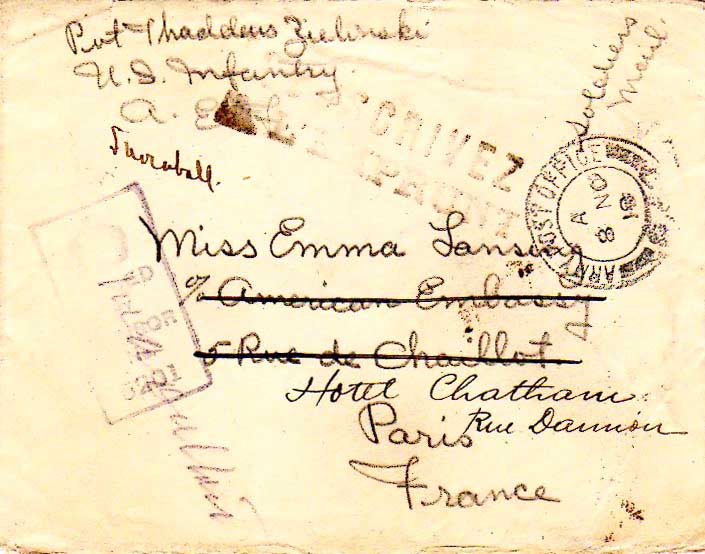 Pvt Thaddeus Zielinski
U.S. Infantry
A.
Soldiers
Mail.
CRIVEZ
ARMY POST OFFICE
A
8 NO
18
Miss Emma Lansing
c/o American Embassy
5 Rue de Chaillot
Hotel Chatham
Rue Daunou
Paris
France
5201